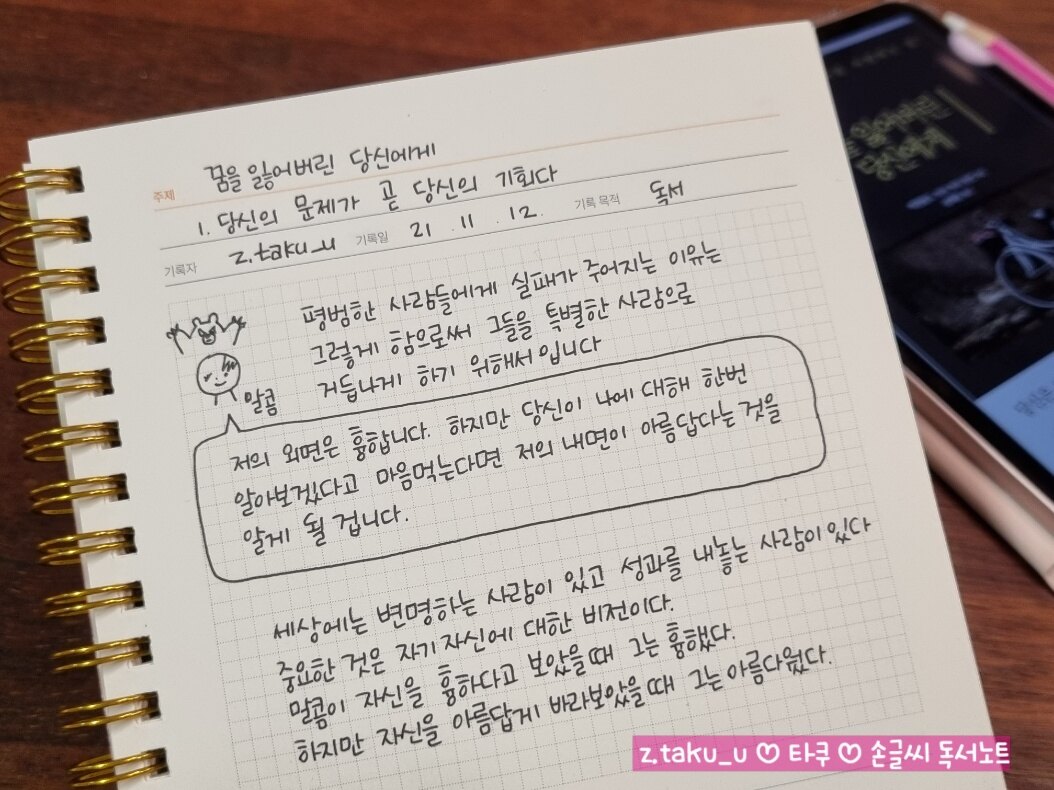 꿈을 잃어버린 당신에게
주제
1. 당신의 문제가 곧 당신의 기회다
기록자 z.taku_u 기록일 21 . 11 . 12. 기록 목적 독서
평범한 사람들에게 실패가 주어지는 이유는
그렇게 함으로써 그들을 특별한 사람으로
거듭나게 하기 위해서 입니다
말콤
저의 외면은 흉합니다. 하지만 당신이 나에 대해 한번
알아보겠다고 마음먹는다면 저의 내면이 아름답다는 것을
알게 될 겁니다.
세상에는 변명하는 사람이 있고 성과를 내놓는 사람이 있다
중요한 것은 자기 자신에 대한 비전이다.
말콤이 자신을 흉하다고 보았을때 그는 흉했다.
하지만 자신을 아름답게 바라보았을때 그는 아름다웠다.
잃어버린
당신에게
z.taku_u ♡ 타쿠 ♡ 손글씨 독서노트